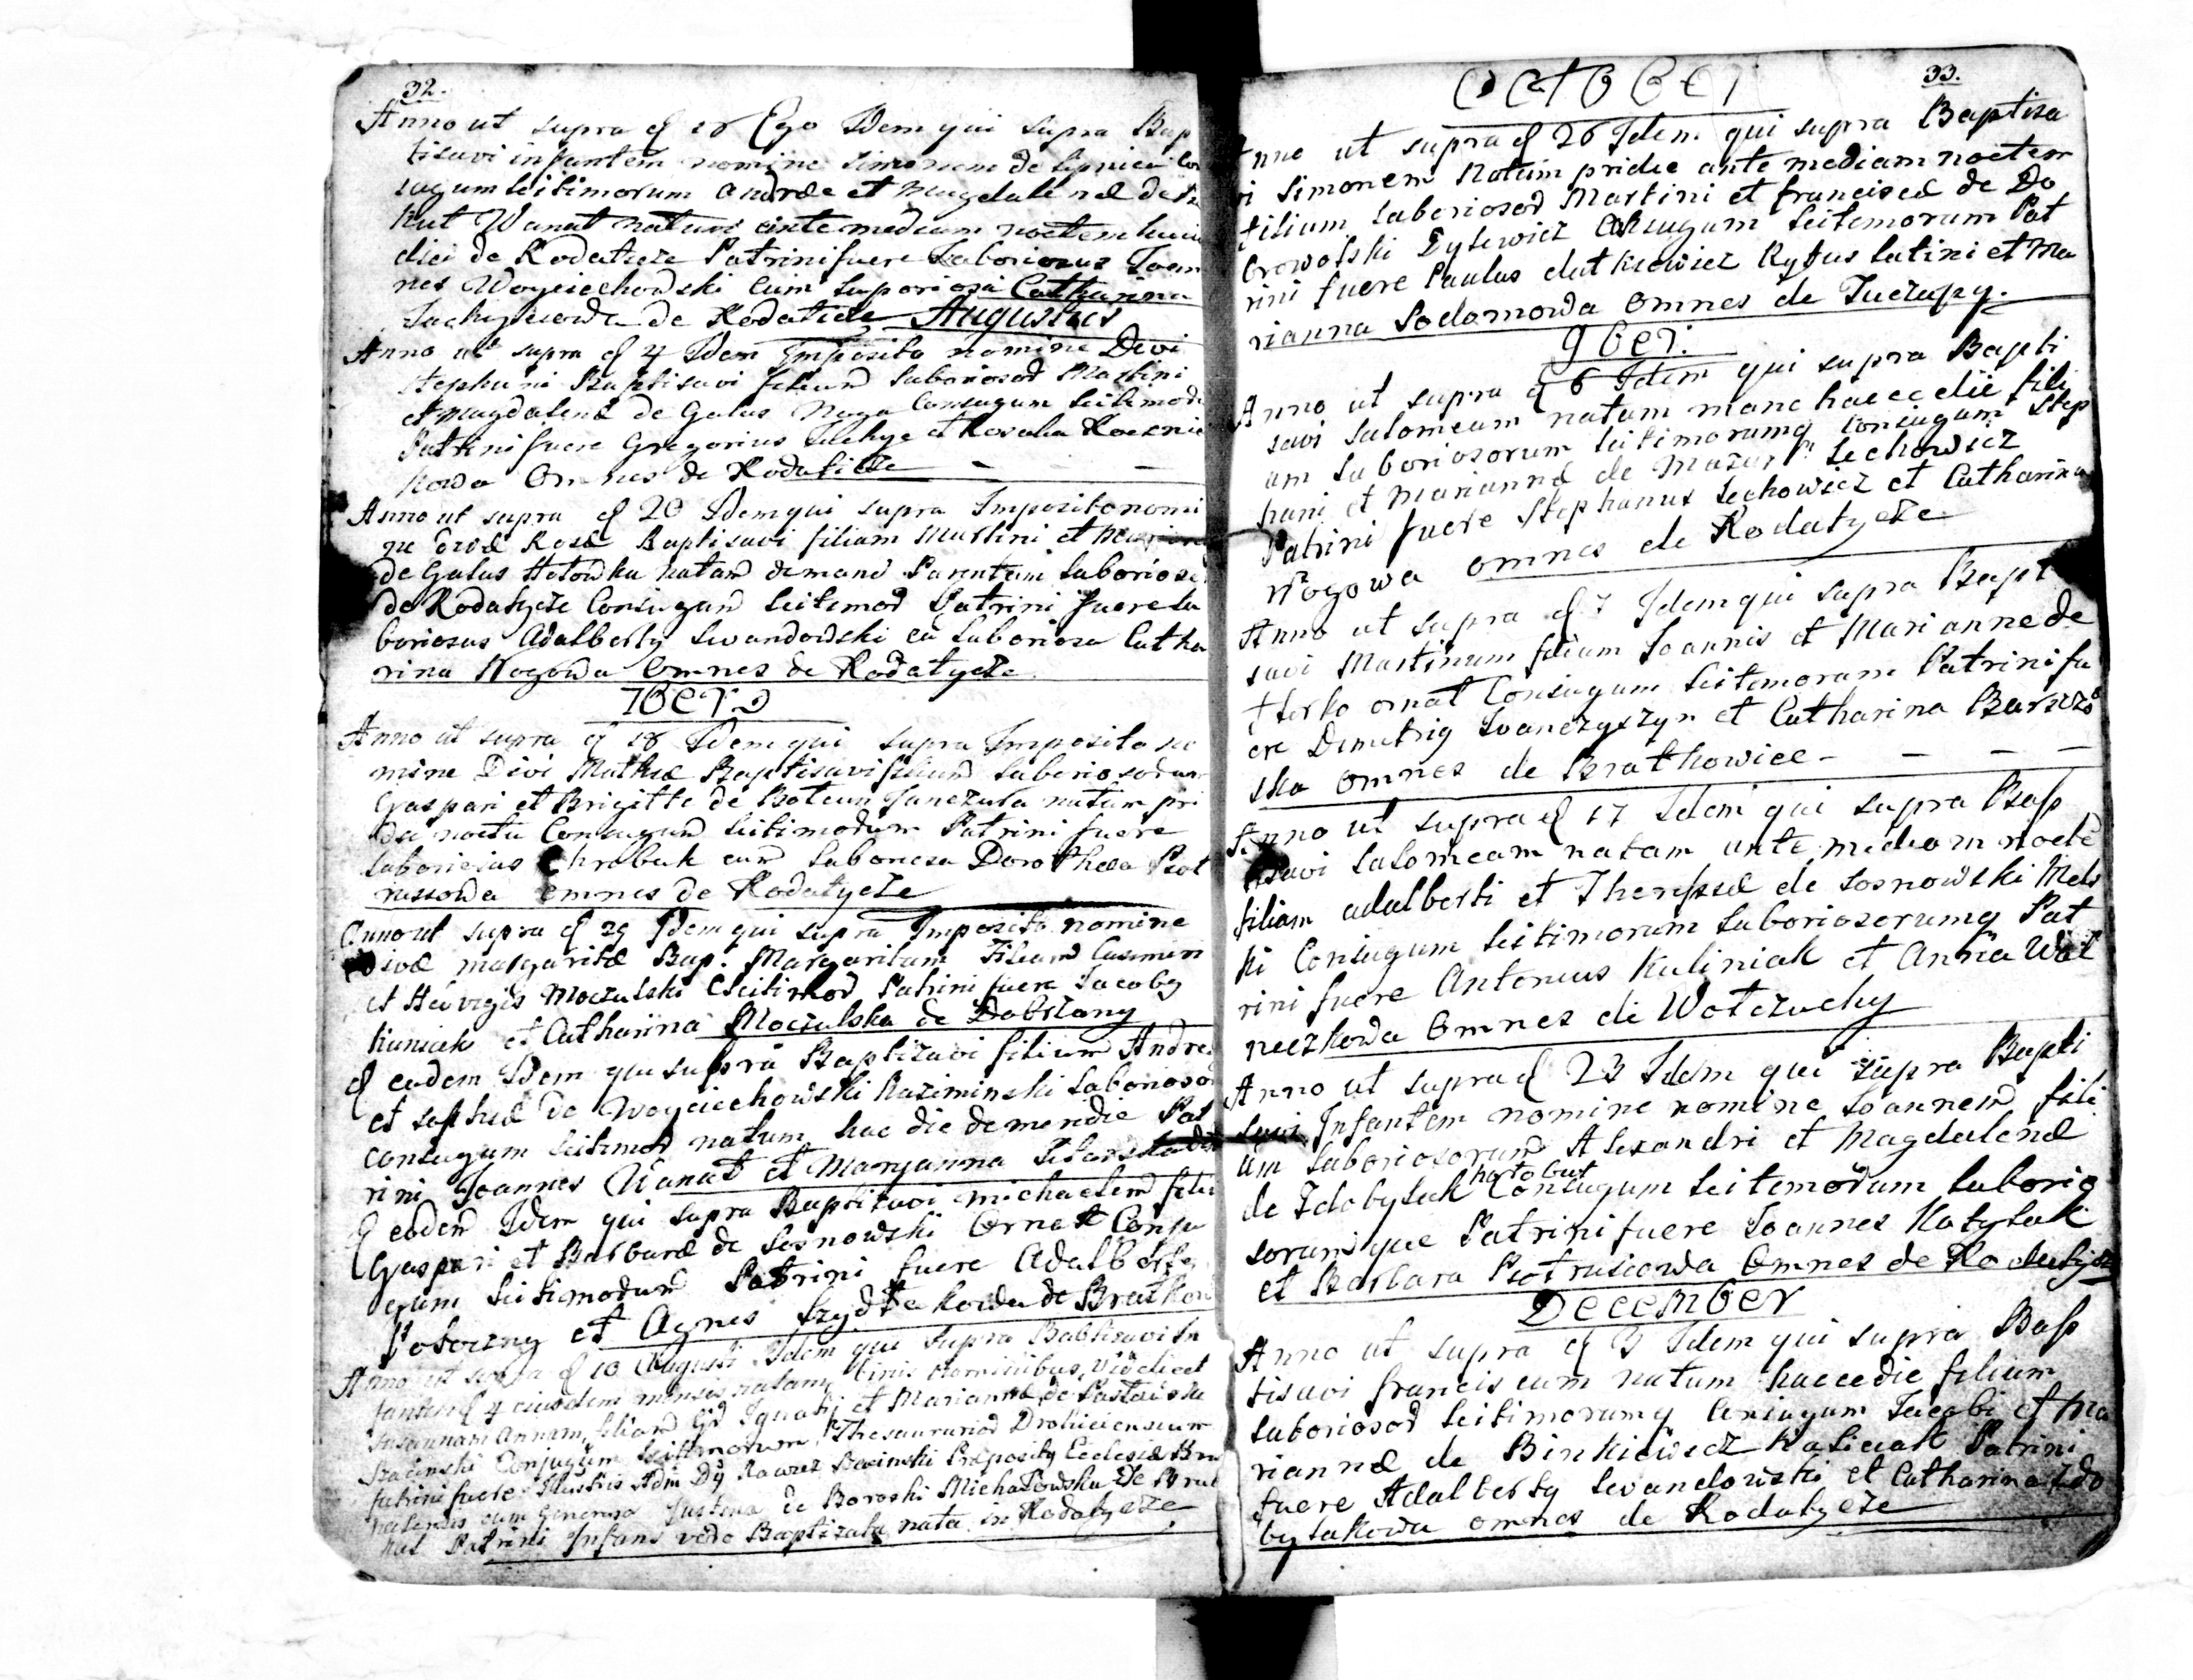 32.
Anno ut supra d 28 Ego Idem qui supra Bap
tisavi infantem nomine Simonem de Lipnicki Con
jugum leitimorum Andreæ et Magdalenæ de
kut Wanat natum ante mediam noctem hujus
diei de Rodatycze Patrini fuere Laboriosus Joan
nes Woyciechowski cum Laboriosa Catharina
de Rodatycze Augustus
Anno ut supra d 4 Idem Imposito nomine Divi
Stephani Baptisavi filium Laboriosod Martini
et Magdalenæ de Galus Noga Conjugum leitimod
Patrini fuere Gregorius et Rosalia
kowa Omnes de Rodaticze
Anno ut supra d 20 Idem qui supra Imposito nomi
ne Divæ Rosæ Baptisavi filiam Martini et
de Galus Hołowka natam de mane Parentum Laboriosod
de Rodatycze Conjugum leitimod Patrini fuere La
boriosus Adalbertg Lewandowski cu Laboriosa Catha
rina Nogowa Omnes de Rodatycze
7bers
Anno ut supra d 18 Idem qui supra Imposito no
mine Divi Mathæ Baptisavi filium Laboriosodum
Gaspari et Brigitte de natum pri
die noctu Conjugum leitimodum Patrini fuere
Laboriosus Chrabuk cum Laboriosa Dorothea Piot
russowa omnes de Rodatycze
Anno ut supra d 29 Idem qui supra Imposito nomine
Divæ Margaritæ Bap. Margaritam Filiam Casimiri
et Hedvigis Moczulski leitimod Patrini fuere Jacobg
Kuniak et Catharina Moczulska de Dobrzany
d eadem Idem qui supra Baptizavi filium Andreæ
et de Woyciechowski Kaziminski Laboriosod
Conjugum leitimod natum hac die de meridie Pat
rini Joannes Wanat et Maryanna
d eodem Idem qui supra Baptizavi Michaelem filium
Gaspari et Barbaræ de Sosnowski Ornat Conju
gum leitimodum Patrini fuere Adalbertg
Potoczny et Agnes de Bratkow
Anno ut supra d 10 Augusti Idem qui supra Babtisavi In
fantem d 4 ejusdem mensis natam, binis Nominibus, videlicet
Susannam Annam, filiam Gd Ignatij et Mariannæ de
Conjugum leitimorum, Thesaurariod Drohiciensium
Patrini fuere Illustris Adm Dg Præpositg Ecclesiæ
cum Generosa Justina de Boroski Michałowska De
Patrini Infans vero Baptizata nata in Rodatycze
33.
OCtober
Anno ut supra d 26 Idem qui supra Baptisa
vi Simonem Natum pridie ante mediam noctem
filium Laboriosod Martini et francisce de Do
browolski Dylewicz Conjugum leitemorum Pat
rini fuere Paulus dutkiewicz Rytus latini et Ma
rianna Sodomowa Omnes de Tuczapy.
9ber.
Anno ut supra d 6 Idem qui supra Bapti
savi Salomeam natam mane haecce die fili
am Laboriosorum leitimorumq Conjugum Step
hani et Mariannæ de Mazur Lechowicz
Patrini fuere Stephanus Lechowicz et Catharina
Nogowa omnes de Rodatycze
Anno ut supra d 7 Idem qui supra Bapt
savi Martinum filium Joannis et Marianne de
Horko ornat Conjugum leitemorum Patrini fu
ere Dimitrig Iwanczyszyn et Catharina
ska omnes de Bratkowice - - - -
Anno ut supra d 17 Idem qui supra Bap
tisavi Salomeam natam ante mediam nocte
filiam adalberti et Theressæ de Sosnowski Mels
ki Conjugum leitimorum Laboriosorumq Pat
rini fuere Antonius Kuliniak et Anna Wol
neczkowa Omnes de Wołczuchy
Anno ut supra d 23 Idem qui supra Bapti
savi Infantem nomine nomine Joannem fili
um Laboriosorum Alexandri et Magdalenæ
hołobut
de Zdobylak Conjugum leitemorum Laborio
sorumque Patrini fuere Joannes Kotylak
et Barbara Piotrusiowa Omnes de Rodatycze
December
Anno ut supra d 3 Idem qui supra Bap
tisavi franciscum natum haecce die filium
Laboriosod leitimorumq Conjugum Jacobi et Ma
riannæ de Binkiewicz Kasieiak Patrini
fuere Adalbertg Lewandowski et Catharina Zdo
bylakowa omnes de Rodatycze